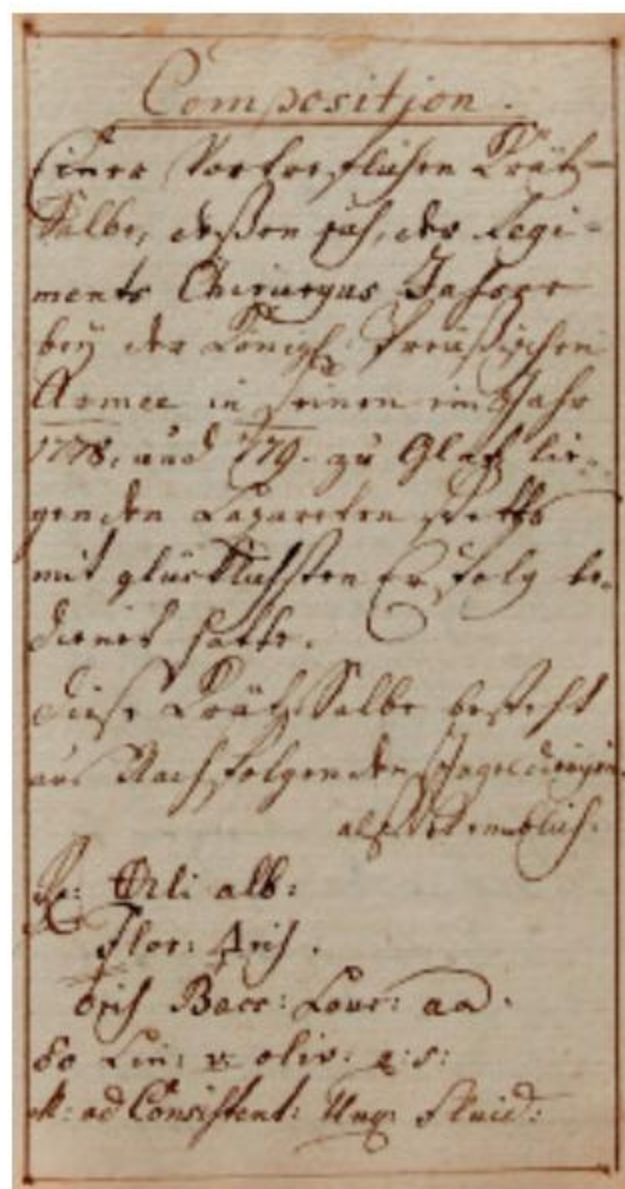 Composition.
Einer Vortreflichen Krätz-
Salbe, deßen sich, der Regi-
ments Chirurgus Jasser
bey der Königl: Preußischen
Armee in seinen im Jahr
1778. und 779. zu Glatz lie-
genden Lazareten stetts
mit glücklichsten Erfolg be-
dienet hatte.
Diese Krätz Salbe besteht
aus Nachfolgenden
als nemblich:
Rx: Vitrioli alb:
Flor: 🜍ris.
Bacc: Laur: aa.
Lin: v: oliv: q: s:
M: ad Consistent: Ung: fluid: